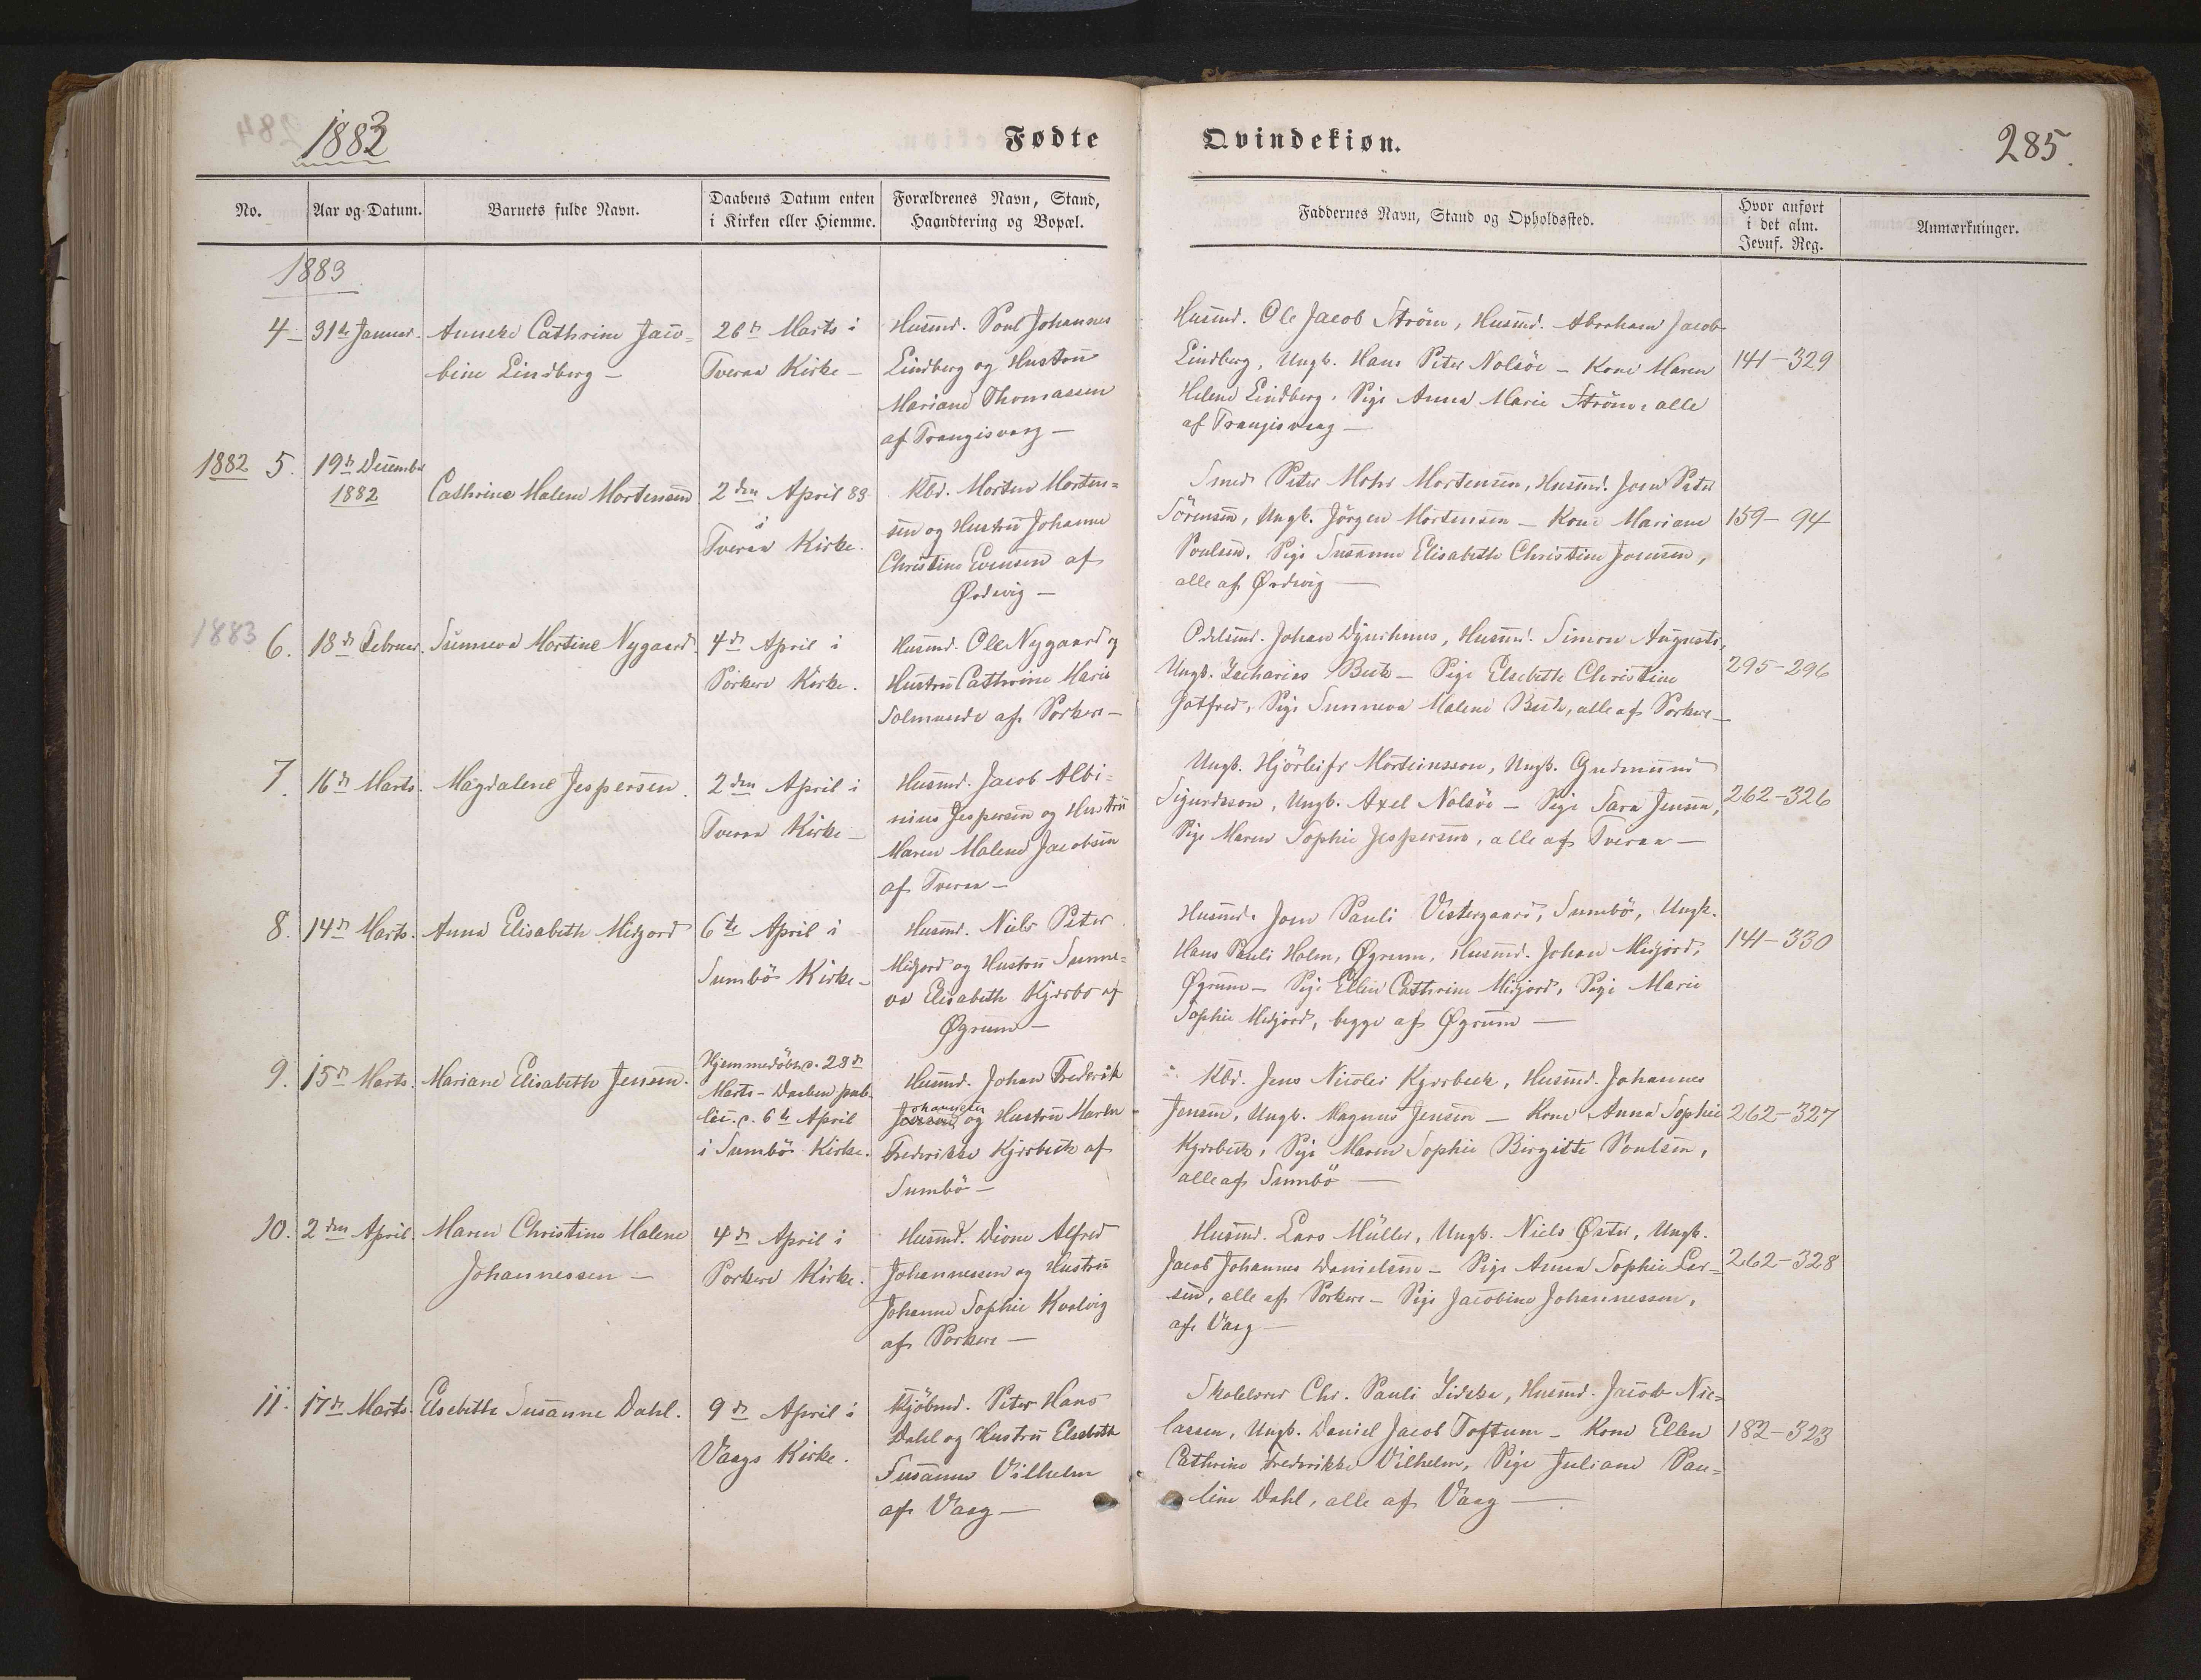 1883
Fødte
Qvindekiøn.
285.
No.
Aar og Datum.
Barnets fulde Navn.
Daabens Datum enten
i Kirken eller Hiemme.
Forældrenes Navn, Stand,
Haandtering og Bopæl.
Faddernes Navn, Stand og Opholdssted.
Hvor anført
i det alm.
Jevnf. Reg.
Anmærkninger.
1883
4 -
31te Januar.
Cathrine Jaco-
bine Lindberg -
26de Marts i
Tveraa Kirke -
Husmd. Poul Johannes
Lindberg og Hustru
Mariane Thomassen
af Trangisvaag -
Husmd. Ole Jacob Ström, Husmd. Abraham Jacob
Lindberg, Ungk. Hans Peter Nolsöe - Kone Maren
Helene Lindberg, Pige Anna Marie Ström, alle
af Trangisvaag -
141-329
1882
5.
19de December
1882
Cathrine Malene Mortensen
2den April 83
i
Tveraa Kirke.
Kbd. Morten Morten-
sen og Hustru Johanne
Christine Evensen af
Ørdevig -
Smed Peter Mohr Mortensen, Husmd. Joen Peter
Sörensen, Ungk. Jörgen Mortensen - Kone Mariane
Poulsen, Pige Susanne Elisabeth Christine Joensen,
alle af Ørdevig -
159- 94
1883
6.
18de Februar.
Sunneva Mortine Nygaard.
4de April i
Porkere Kirke.
Husmd. Ole Nygaard og
Hustru Cathrine Marie
af Porkere -
Odelsmd. Johan Djurhuus, Husmd. Simon Augusti,
Ungk. Zacharias Bech - Pige Elsebeth Christine
Gotfred, Pige Sunneva Malene Bech, alle af Porkere -
295-296
7.
16de Marts.
Magdalene Jespersen.
2den April i
Tveraa Kirke -
Husmd. Jacob Albi-
nius Jespersen og Hustru
Maren Malene Jacobsen
af Tveraa -
Ungk. Hjörleifr Morteinsson, Ungk. Gudmund
Sigurdsson, Ungk. Axel Nolsöe - Pige Sara Jensen,
Pige Maren Sophie Jespersen, alle af Tveraa -
262-326
8.
14de Marts.
Anna Elisabeth Midjord
6te April i
Sumbö Kirke -
Husmd. Niels Peter
Midjord og Hustru Sunne-
va Elisabeth Kjærbo af
Øgrum -
Husmd. Joen Pauli Vestergaard, Sumbö, Ungk.
Hans Pauli Holm, Øgrum, Husmd. Johan Midjord,
Øgrum - Pige Ellen Cathrine Midjord, Pige Marie
Sophie Midjord, begge af Øgrum -
141-330
9.
15de Marts.
Mariane Elisabeth Jensen.
Hjemmedöbt d. 28de
Marts - Daaben pub-
lic. d. 6te April
i Sumbö Kirke.
Husmd. Johan Frederik
og Hustru Maren
Frederikke Kjærbech af
Sumbö -
Kbd. Jens Nicolai Kjærbech, Husmd. Johannes
Jensen, Ungk. Magnus Jensen - Kone Anna Sophie
Kjærbech, Pige Maren Sophie Birgitte Poulsen,
alle af Sumbö -
262-327
10.
2den April.
Maren Christine Malene
Johannessen -
4de April i
Porkere Kirke.
Husmd. Dione Alfred
Johannessen og Hustru
Johanne Sophie Kvalvig
af Porkere -
Husmd. Lars Müller, Ungk. Niels Øster, Ungk.
Jacob Johannes Danielsen - Pige Anna Sophie Lar-
sen, alle af Porkere - Pige Jacobine Johannessen,
af Vaag -
262-328
11.
17de Marts.
Elsebeth Susanne Dahl.
9de April i
Vaags Kirke.
Kjöbmd. Peter Hans
Dahl og Hustru Elsebeth
Susanne Vilhelm
af Vaag -
Skolelærer Chr. Pauli Lidske, Husmd. Jacob Nic-
lassen, Ungk. Daniel Jacob Toftum - Kone Ellen
Cathrine Frederikke Vilhelm, Pige Juliane Pau-
line Dahl, alle af Vaag -
182-323